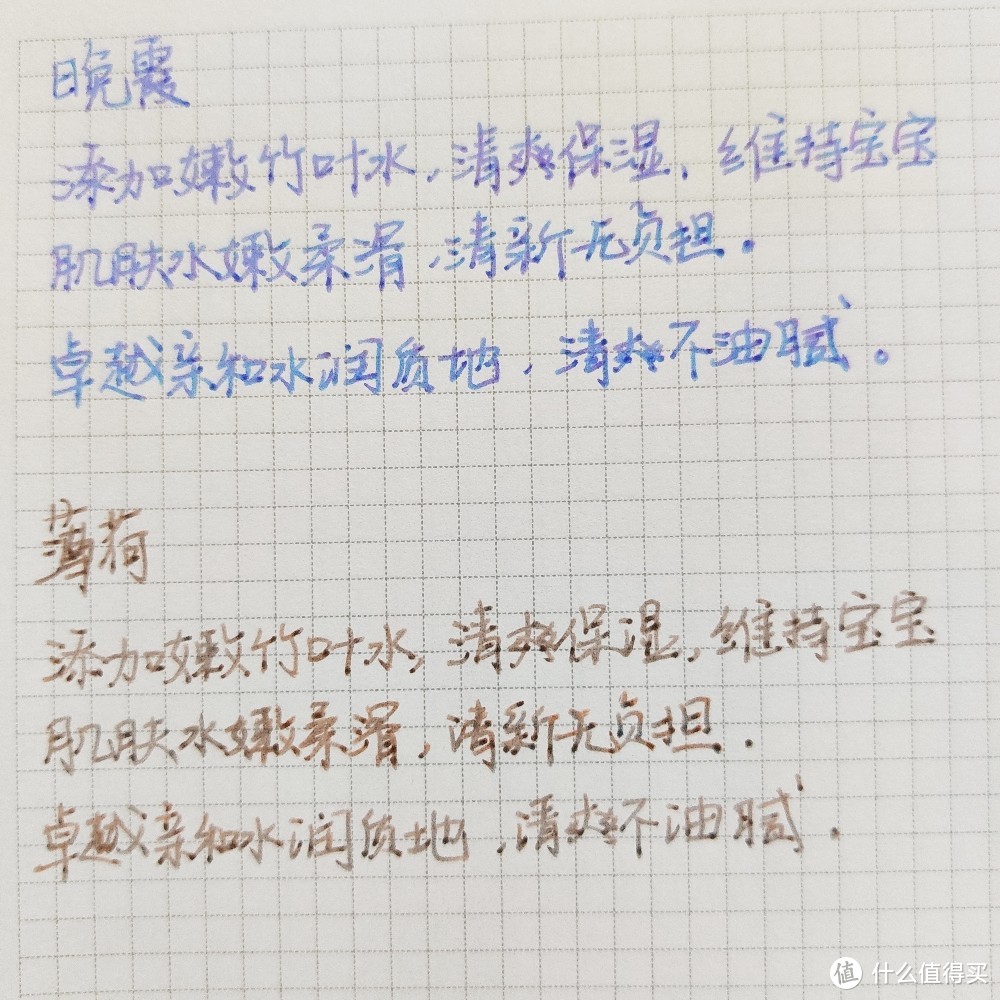 晚霞
添加嫩竹叶水,清爽保湿,维持宝宝
肌肤水嫩柔滑,清新无负担.
卓越亲和水润质地,清爽不油腻。
薄荷
添加嫩竹叶水,清爽保湿,维持宝宝
肌肤水嫩柔滑,清新无负担.
卓越亲和水润质地,清爽不油腻.
值 什么值得买